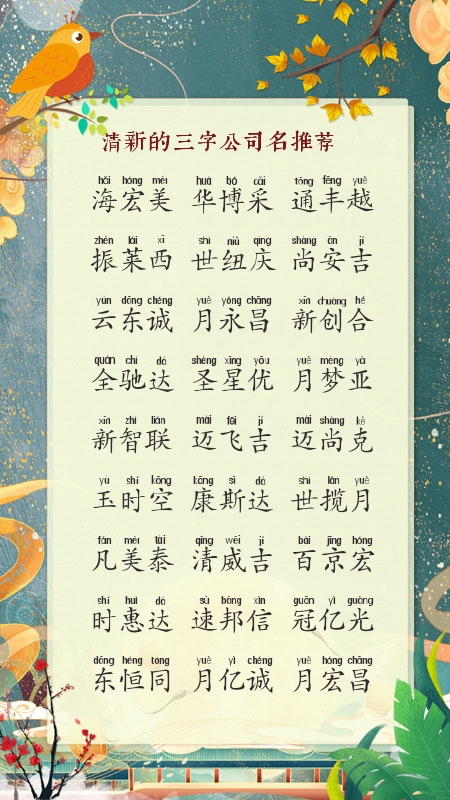 清新的三字公司名推荐
hǎi hóng měi huá bó cǎi tōng fēng yuè
海宏美 华博采 通丰越
zhèn lái xī shì niǔ qìng shàng ān jí
振莱西 世纽庆 尚安吉
yún dōng chéng yuè yǒng chāng xīn chuàng hé
云东诚 月永昌 新创合
quán chí dá shèng xīng yōu yuè mèng yà
全驰达 圣星优 月梦亚
xīn zhì lián mài fēi jí mài shàng kè
新智联 迈飞吉 迈尚克
yù shí kōng kāng sī dá shì lǎn yuè
玉时空 康斯达 世揽月
fán měi tài qīng wēi jí bǎi jīng hóng
凡美泰 清威吉 百京宏
shí huì dá sù bāng xìn guān yì guāng
时惠达 速邦信 冠亿光
dōng héng tóng yuè yì chéng yuè hóng chāng
东恒同 月亿诚 月宏昌